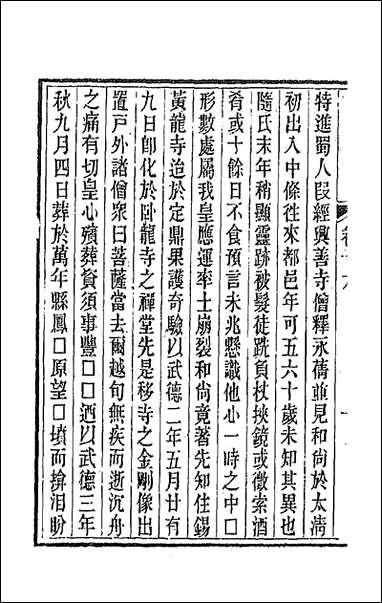 特進蜀人段經興善寺僧釋永蒨並見和尚於太清
初出入中條往來都邑年可五六十歲未知其異也
隨氏末年稍顯靈跡被髮徒跣負杖挾鏡或徵索酒
肴或十餘日不食預言未兆懸識他心一時之中□
形數處屬我皇應運率土崩裂和尚竟著先知住錫
黃龍寺迨於定鼎果護奇驗以武德二年五月廿有
九日即化於臥龍寺之禪堂先是移寺之金剛像出
置戶外諸僧衆曰菩薩當去爾越旬無疾而逝沉舟
之痛有切皇心殯葬資須事豐□□迺以武德三年
秋九月四日葬於萬年縣鳳□原望□墳而揜泪盼